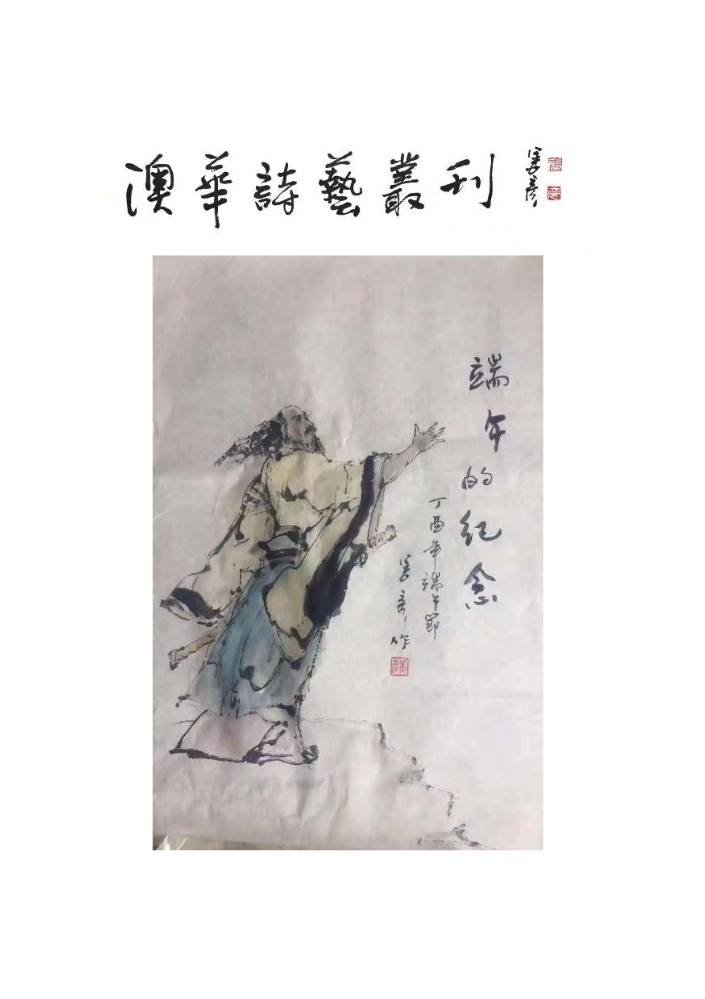 澳華詩藝叢刊
端午的紀念
丁酉年端午節
作